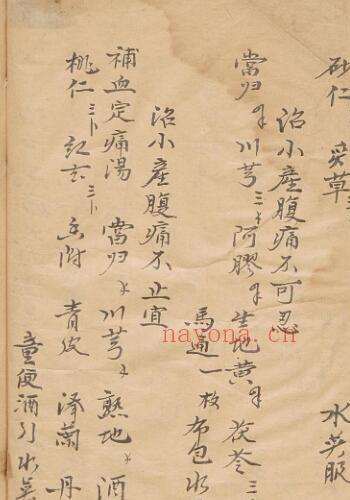 砂仁 炙草
水煎服
治小產腹痛不可忍
當归 川芎 阿膠 生地黄 茯苓
馬通一枚布包水
治小產腹痛不止宜
補血定痛湯 當归 川芎 熟地 酒
桃仁 红花 香附 青皮 泽蘭 丹
童便酒引水煎
nayona.cn